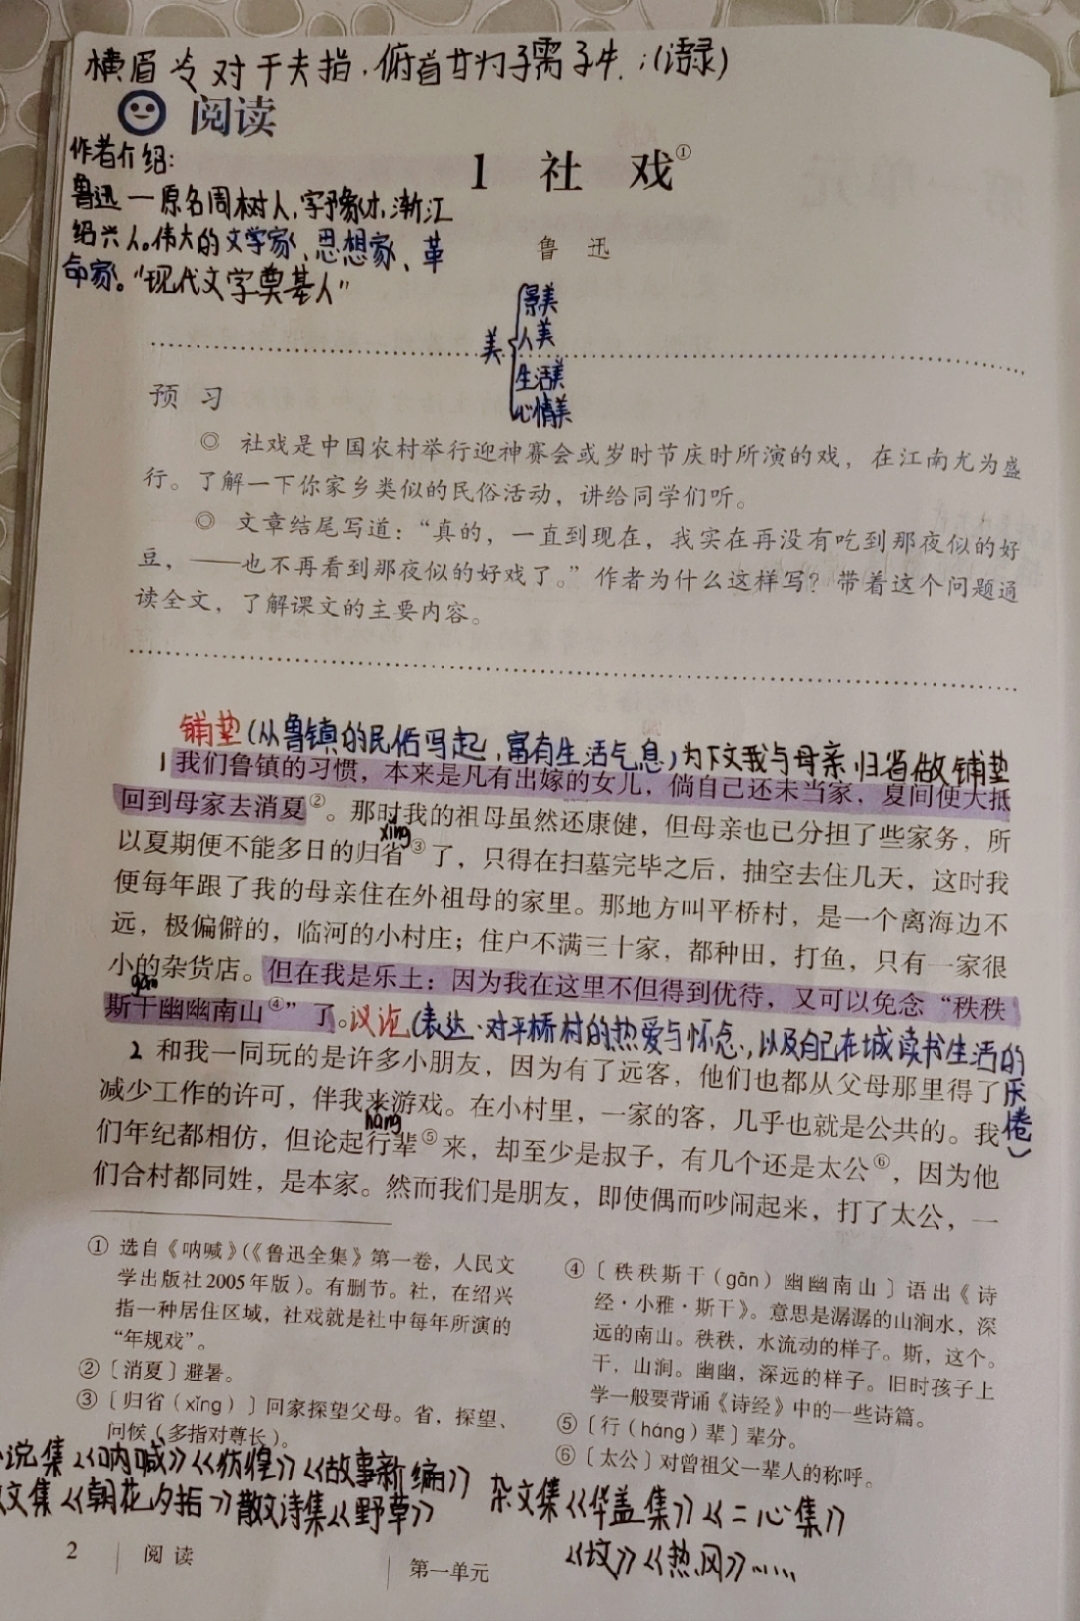 横眉冷对千夫指.俯首甘为孺子牛.;(语录)
阅读
作者介绍:
1 社 戏①
鲁迅—原名周树人,字豫才,浙江
绍兴人。伟大的文学家、思想家、革
命家。“现代文学奠基人”
鲁 迅
美
景美
人美
生活美
心情美
预 习
◎ 社戏是中国农村举行迎神赛会或岁时节庆时所演的戏，在江南尤为盛
行。了解一下你家乡类似的民俗活动，讲给同学们听。
◎ 文章结尾写道：“真的，一直到现在，我实在再没有吃到那夜似的好
豆，——也不再看到那夜似的好戏了。”作者为什么这样写？带着这个问题通
读全文，了解课文的主要内容。
铺垫(从鲁镇的民俗写起,富有生活气息)为下文我与母亲归省做铺垫
1 我们鲁镇的习惯，本来是凡有出嫁的女儿，倘自己还未当家，夏间便大抵
回到母家去消夏②。那时我的祖母虽然还康健，但母亲也已分担了些家务，所
xǐng
以夏期便不能多日的归省③了，只得在扫墓完毕之后，抽空去住几天，这时我
便每年跟了我的母亲住在外祖母的家里。那地方叫平桥村，是一个离海边不
远，极偏僻的，临河的小村庄；住户不满三十家，都种田，打鱼，只有一家很
小的杂货店。但在我是乐土：因为我在这里不但得到优待，又可以免念“秩秩
gān
斯干幽幽南山④”了。议论(表达.对平桥村的热爱与怀念,以及自己在城读书生活的
厌倦)
2 和我一同玩的是许多小朋友，因为有了远客，他们也都从父母那里得了
减少工作的许可，伴我来游戏。在小村里，一家的客，几乎也就是公共的。我
háng
们年纪都相仿，但论起行辈⑤来，却至少是叔子，有几个还是太公⑥，因为他
们合村都同姓，是本家。然而我们是朋友，即使偶而吵闹起来，打了太公，一
① 选自《呐喊》(《鲁迅全集》第一卷，人民文
学出版社2005年版)。有删节。社，在绍兴
指一种居住区域，社戏就是社中每年所演的
“年规戏”。
② 〔消夏〕避暑。
③ 〔归省(xǐng)〕回家探望父母。省，探望、
问候(多指对尊长)。
④ 〔秩秩斯干(gān)幽幽南山〕语出《诗
经·小雅·斯干》。意思是潺潺的山涧水，深
远的南山。秩秩，水流动的样子。斯，这个。
干，山涧。幽幽，深远的样子。旧时孩子上
学一般要背诵《诗经》中的一些诗篇。
⑤ 〔行(háng)辈〕辈分。
⑥ 〔太公〕对曾祖父一辈人的称呼。
说集《呐喊》《彷徨》《故事新编》
文集《朝花夕拾》散文诗集《野草》
杂文集《华盖集》《二心集》
《坟》《热风》……
2 阅 读
第一单元